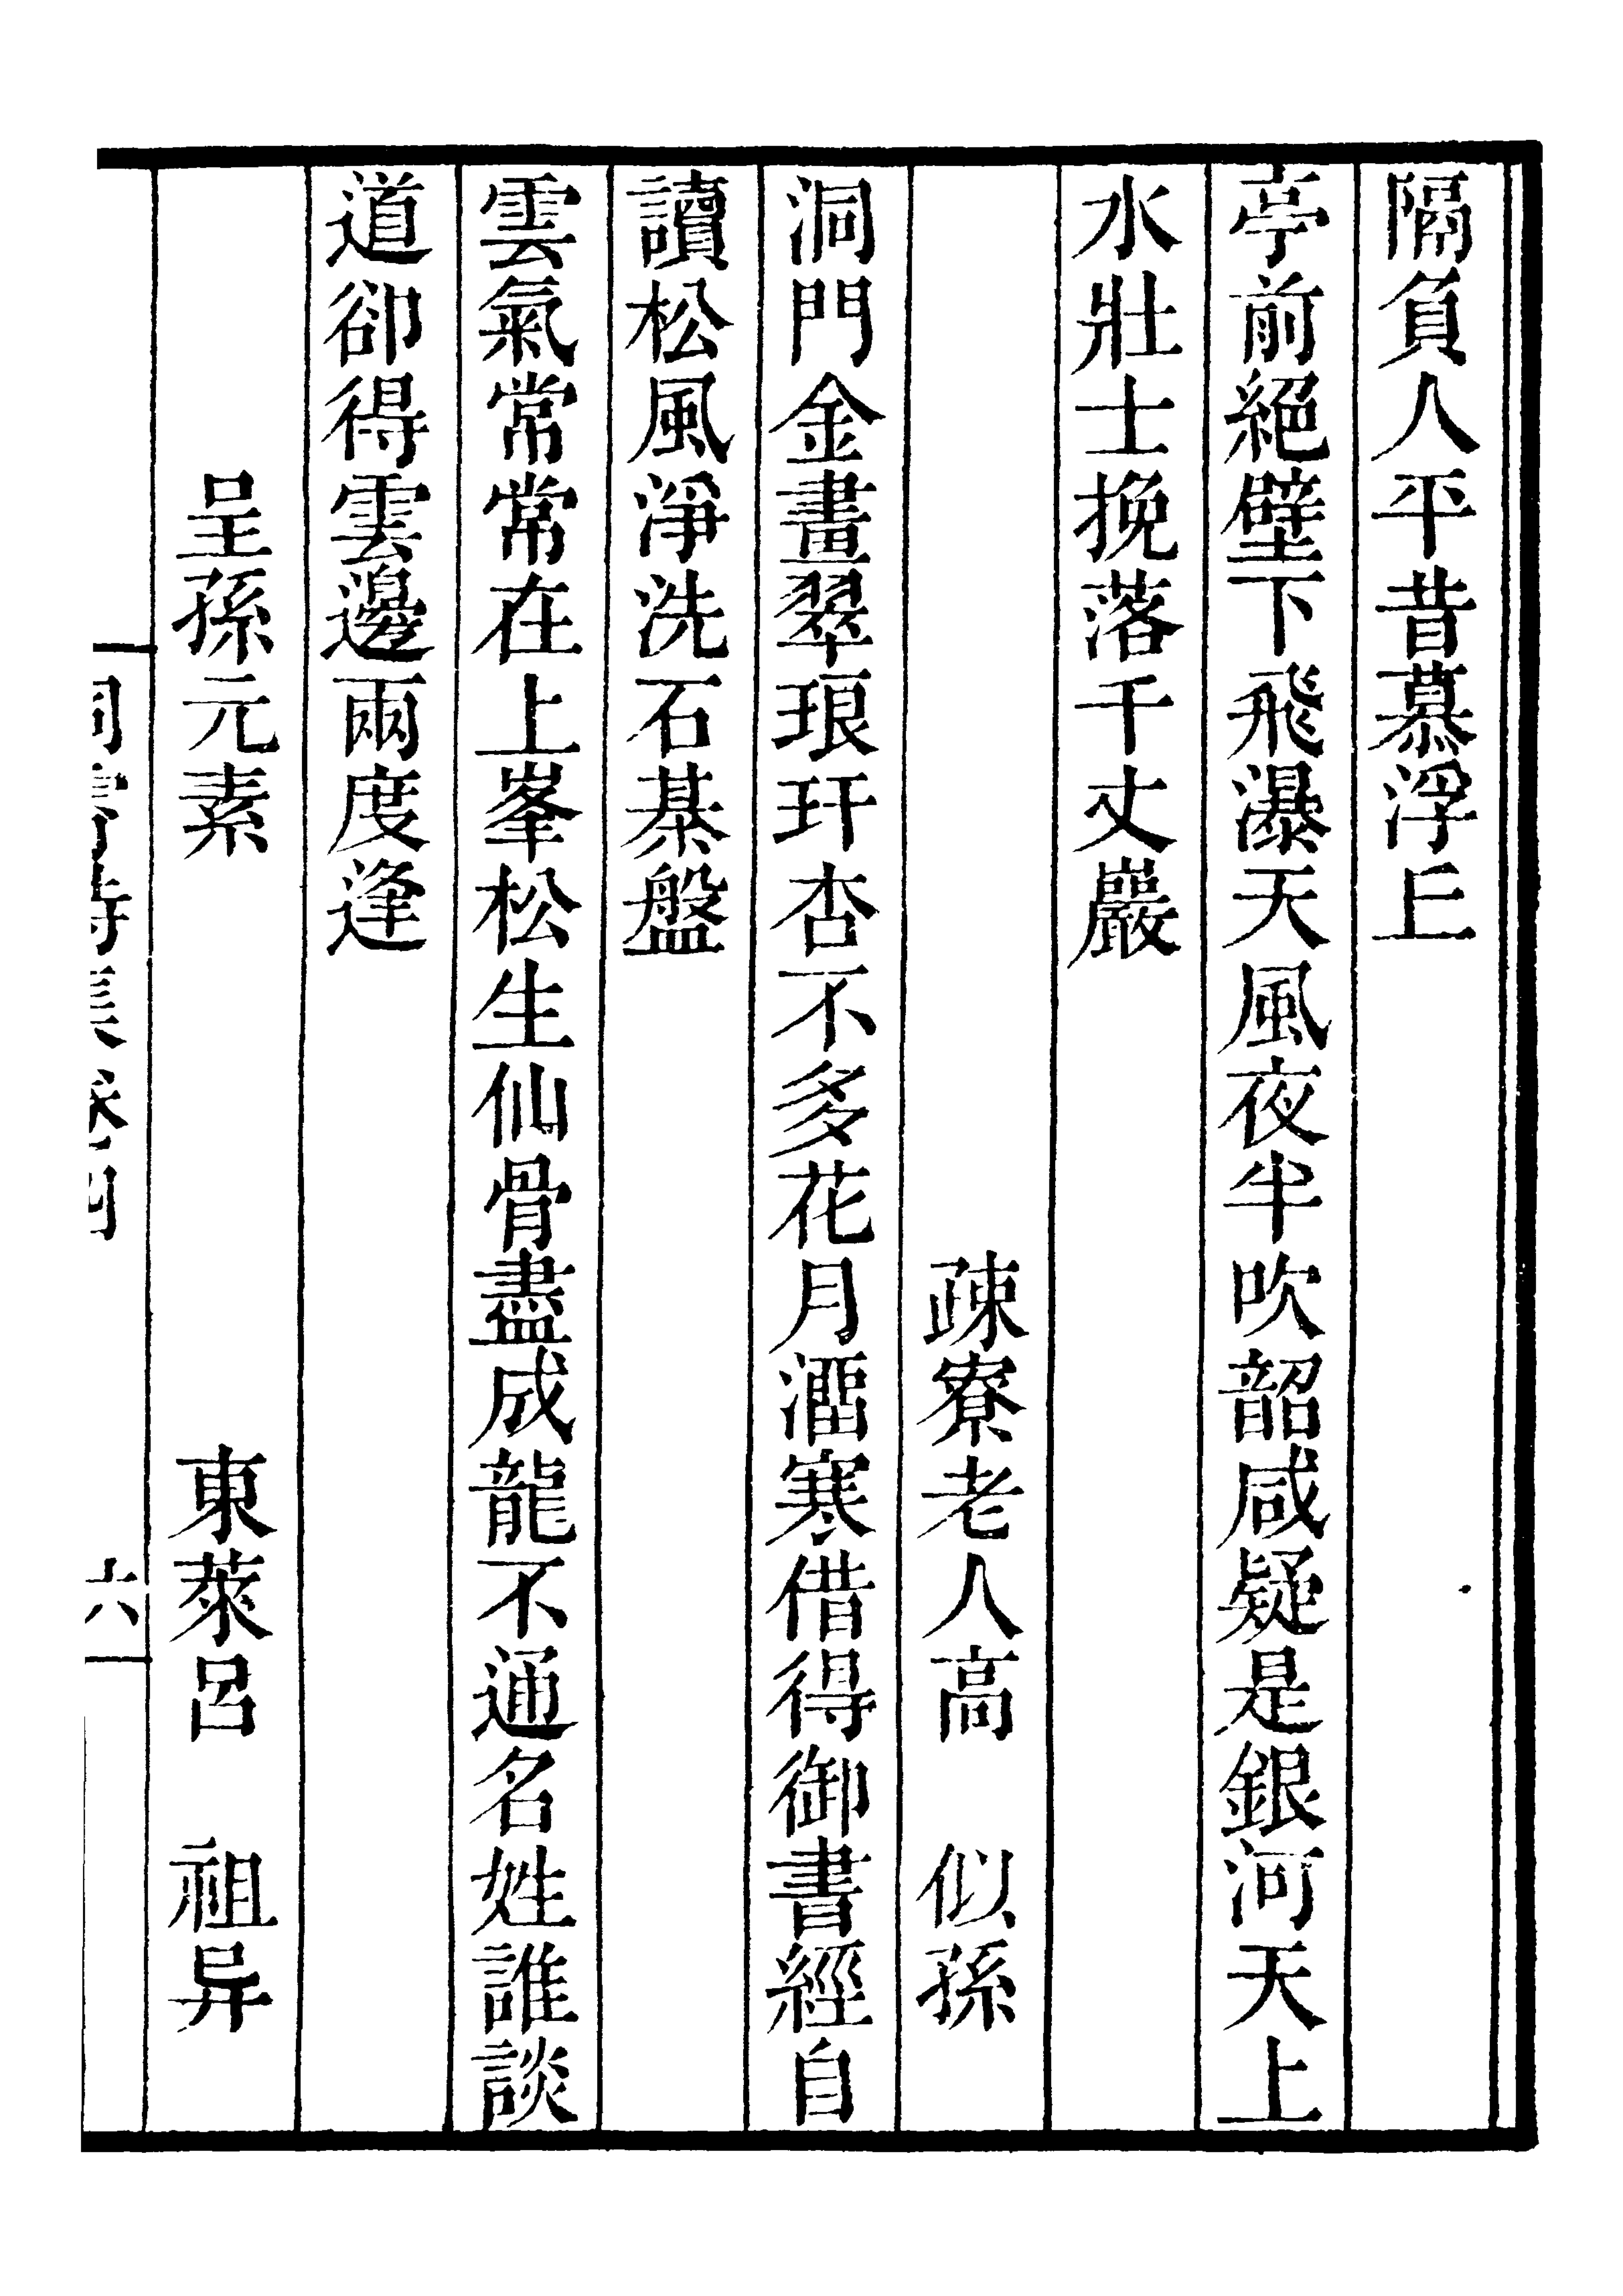 隔負人平昔慕浮丘
亭前絕壁下飛瀑天風夜半吹韶咸疑是銀河天上
水壯士挽落千丈巖
疎寮老人高　似孫
洞門金畫翠琅玕杏不多花月寒借得御書經自
讀松風淨洗石棊盤
雲氣常常在上峯松生仙骨盡成龍不通名姓誰談
道卻得雲邊兩度逢
呈孫元素　東萊呂　祖异
洞霄詩集卷四　六